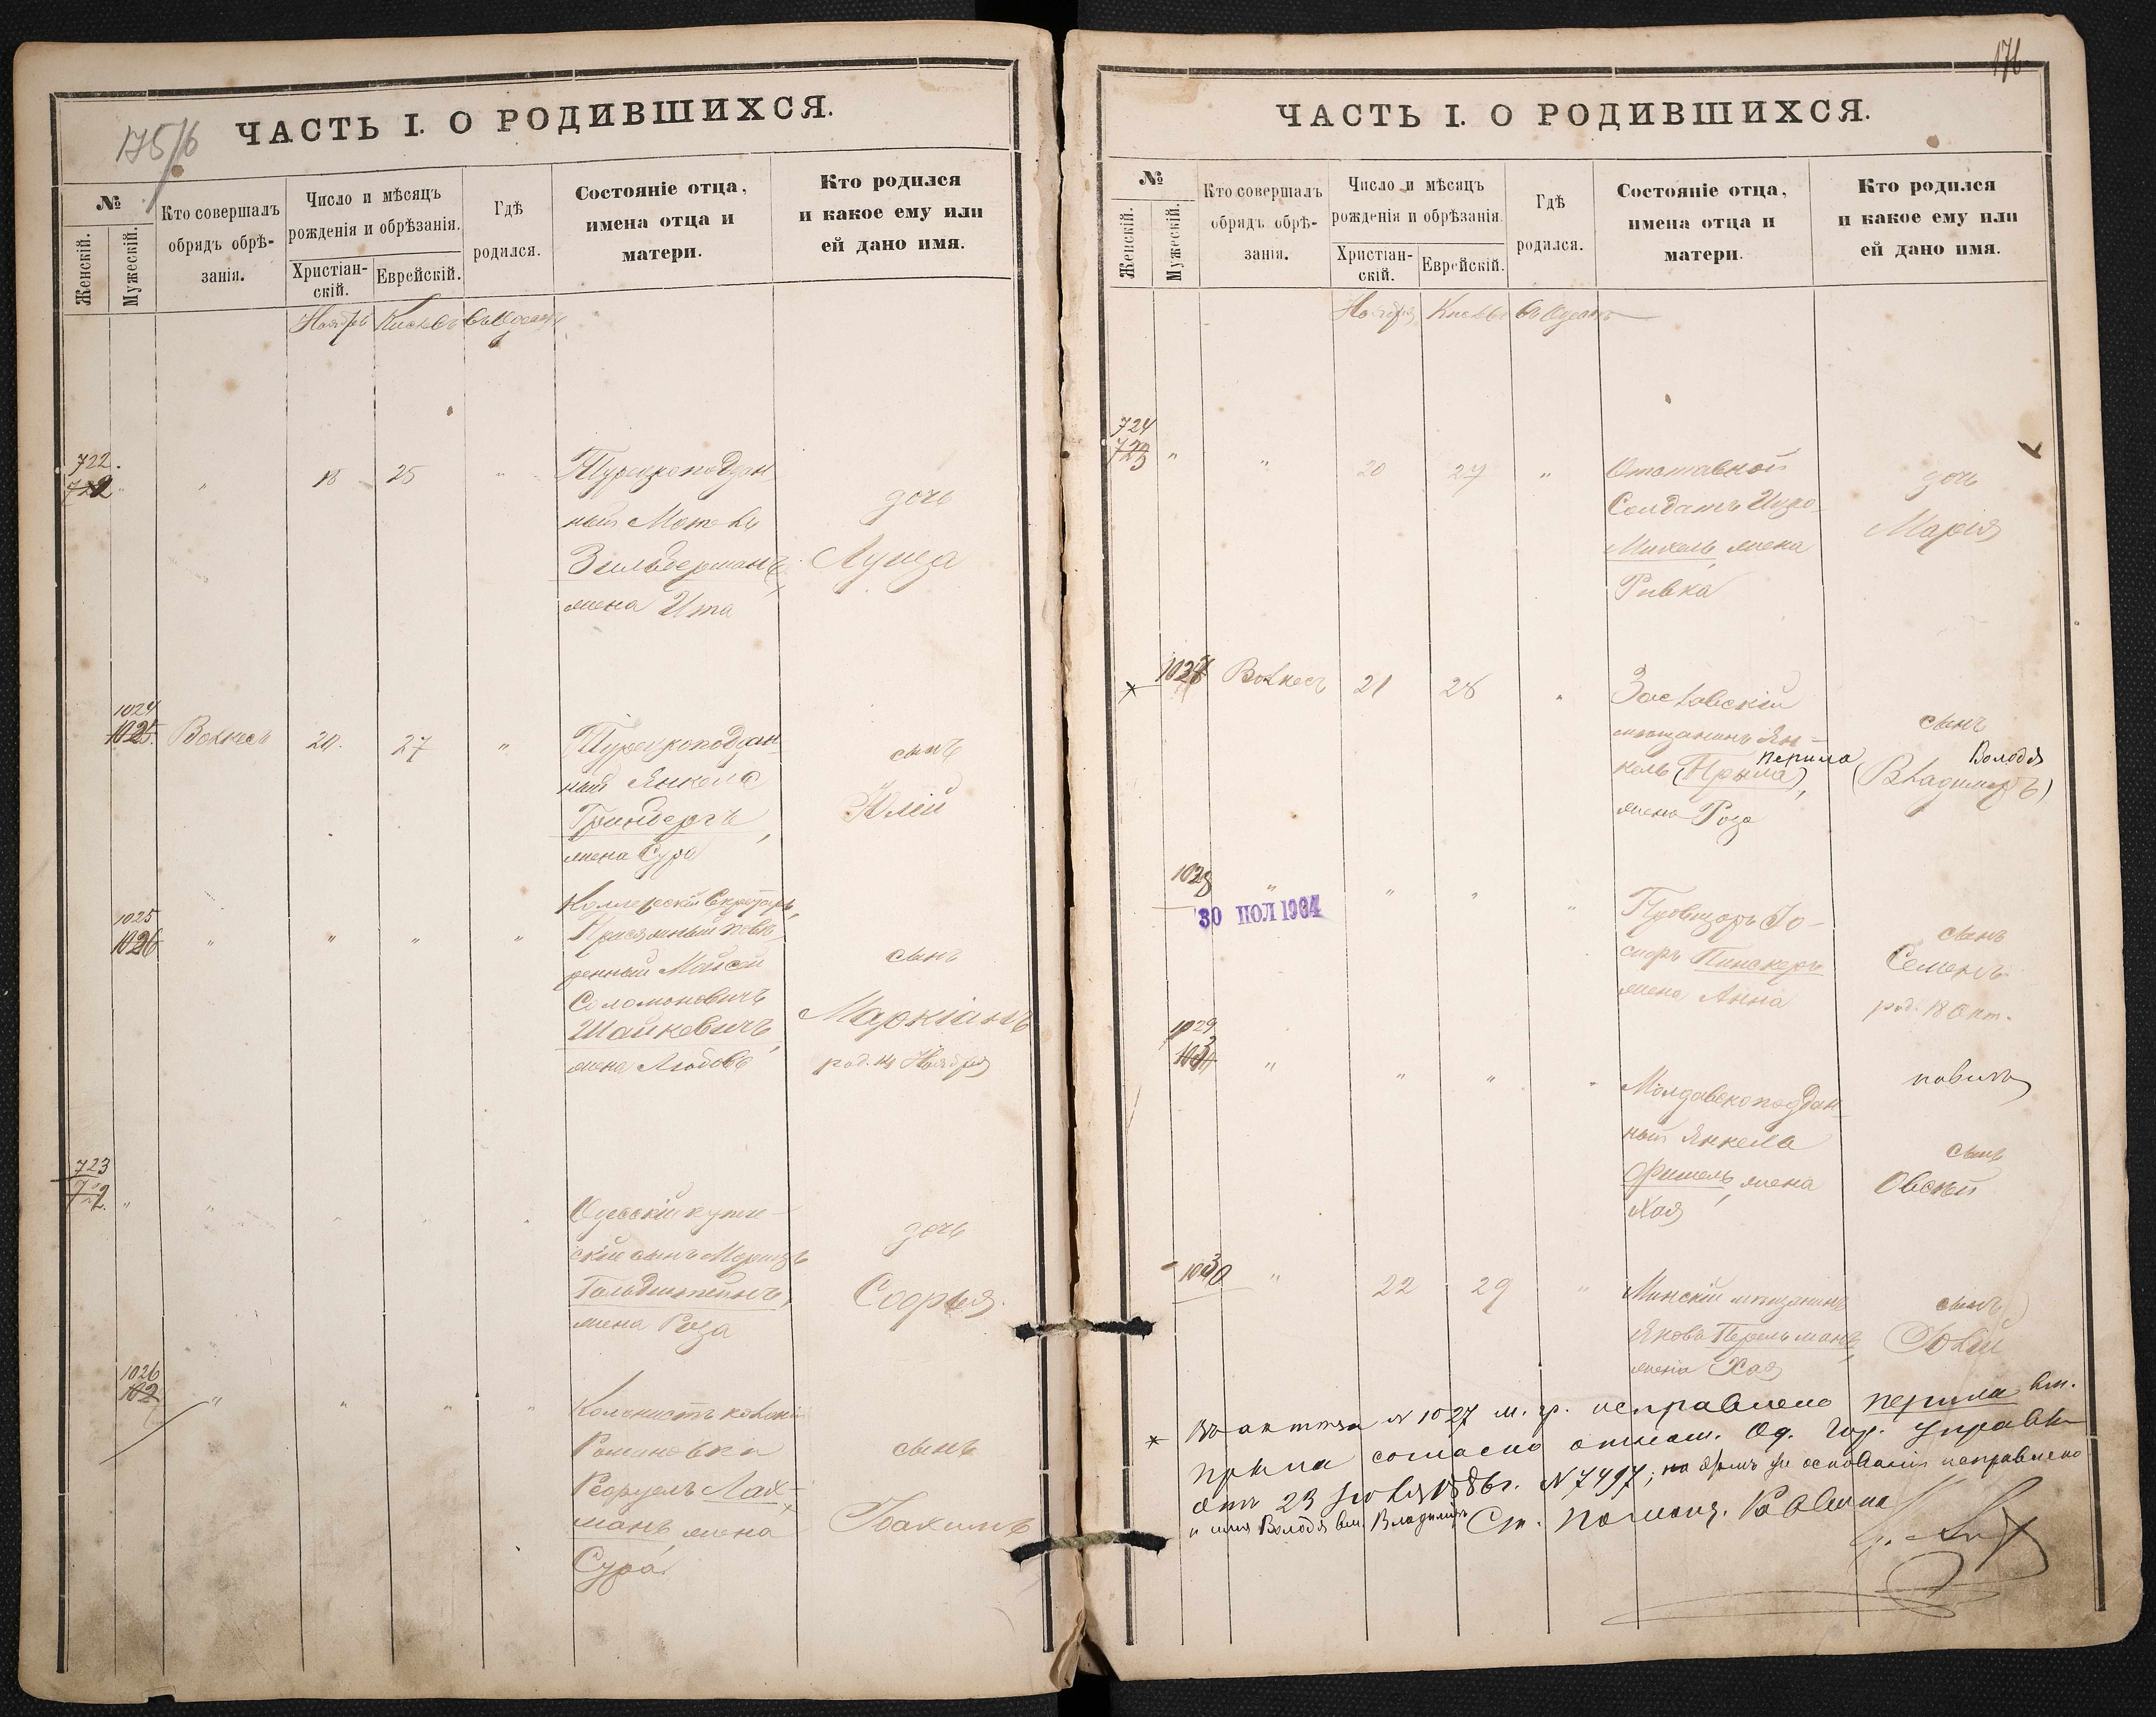 175/6
ЧАСТЬ I. О РОДИВШИХСЯ.
№
Женскій.
Мужескій.
Кто совершалъ
обрядъ обрѣ-
занія.
Число и мѣсяцъ
рожденія и обрѣзанія.
Христіан-
скій.
Еврейскій.
Гдѣ
родился.
Состояніе отца,
имена отца и
матери.
Кто родился
и какое ему или
ей дано имя.
Ноябрь Кислевъ въ Одессѣ
722.
" " 18 25 " Турецкоподдан
ный Мотель
Зильберманъ,
жена Ита
дочь
Луиза
1024
1025. Волкесъ 20. 27 " Турецкоподдан-
ный Янкель
Гринбергъ,
жена Сура
сынъ
Юлій
1025
1026 " " " " Коллежскій Секретарь,
Присяжный повѣ-
ренный Мойсей
Соломоновичъ
Шайкевичъ,
жена Любовь
сынъ
Маркіанъ
род. 14 Ноября
723
722. " " " " " Одесскій купе-
скій сынъ Морицъ
Гольдштейнъ,
жена Роза
дочь
Софья.
1026
102 " " " " Колонистъ колоніи
Романовка
Лах-
манъ, жена
Сура.
сынъ
Іоахимъ
176
ЧАСТЬ I. О РОДИВШИХСЯ.
№
Женскій.
Мужескій.
Кто совершалъ
обрядъ обрѣ-
занія.
Число и мѣсяцъ
рожденія и обрѣзанія.
Христіан-
скій.
Еврейскій.
Гдѣ
родился.
Состояніе отца,
имена отца и
матери.
Кто родился
и какое ему или
ей дано имя.
Ноябрь Кислевъ въ Одессѣ
724
723 " " 20 27 " Отставной
Солдатъ Ицко
Михель, жена
Ривка
дочь
Марія
1027 Волкесъ 21 28 " Заславскій
мѣщанинъ Ян-
кель (Прыма), Перима
жена Роза
сынъ
Володя
(Владимиръ)
1028 " " " "
30 ИЮЛ 1964
Провизоръ Іо-
сифъ Пинскеръ
жена Анна
сынъ
Семенъ
род. 18 Окт.
1029
" " " " Молдавскоподдан-
ный Янкель
Фишель, жена
Хая
сынъ
Овсѣй
1030 " 22 29 " Минскій мѣщанинъ
Яковъ Перельманъ,
жена Хая
сынъ
Юлій
× Въ актѣ за № 1027 м. р. исправлено Перима вм.
Прыма согласно отнош. Од. Гор. Управы
отъ 23 Іюля 1886г. № 7497; на основаніи исправлено
и имя Володя вм. Владимиръ Ст. Помощ. Раввина